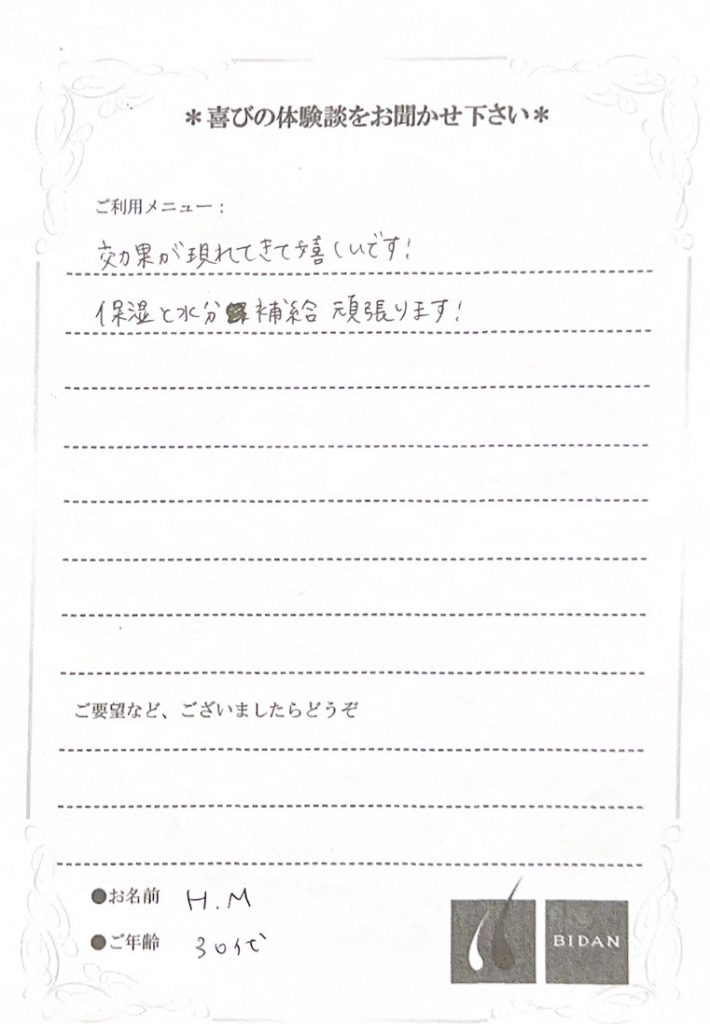 ＊喜びの体験談をお聞かせ下さい＊
ご利用メニュー：
効果が現れてきて嬉しいです!
保湿と水分補給 頑張ります!
ご要望など、ございましたらどうぞ
●お名前 H.M
●ご年齢 30代
BIDAN